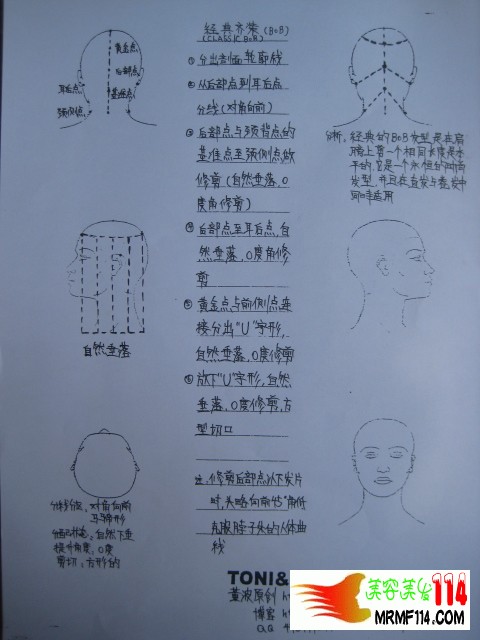 经典齐蓬(BoB)
(CLASSIC BoB)
① 分出剖面轮廓线
② 从后部点到耳后点
分线(对角向前)
③ 后部点与颈背点的
基准点至颈侧点做
修剪(自然垂落,0
度角修剪)
④ 后部点至耳后点,自
然垂落,0度角修
剪
⑤ 黄金点与前侧点连
接分出"U"字形,
自然垂落,0度修剪
⑥ 放下"U"字形,自然
垂落,0度修剪,方
型切口
注:修剪后部点以下发片
时,头略向前45°角低
克服脖子头的人体曲
线
黄金点
后部点
耳后点
基准点
颈侧点
自然垂落
分线分位,对角向前
马蹄形
分配状态:自然下垂
提升角度:0度
剪切:方形的
分析:经典的BoB发型是在肩
膀上剪一个相同长度是水
平的,它是一个永恒的时尚
发型,并且在直发与卷发中
同时适用
TONI&
黄波原创
博客
QQ
美容美发114
MRMF114.COM